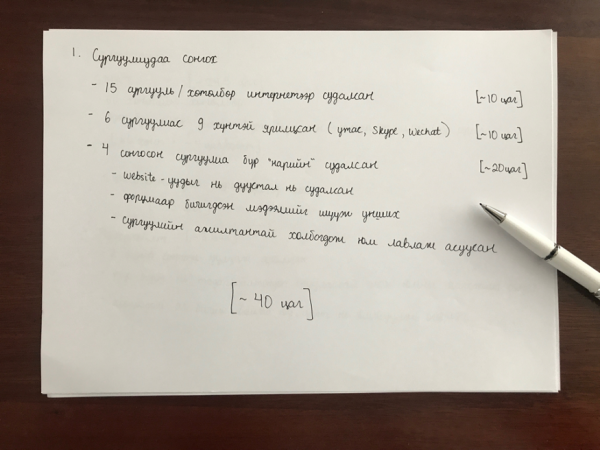 1. Сургуулиудаа сонгох
- 15 сургууль / хөтөлбөр интернетээр судалсан [~10 цаг]
- 6 сургуулиас 9 хүнтэй ярилцсан (утас, Skype, Wechat) [~10 цаг]
- 4 сонгосон сургуулиа бүр "нарийн" судалсан [~20 цаг]
- website-уудыг нь дуустал нь судалсан
- форумаар бичигдсэн мэдээллийг шүүж унших
- сургуулийн ажилтантай холбогдож юм лавлаж асуусан
[~ 40 цаг]